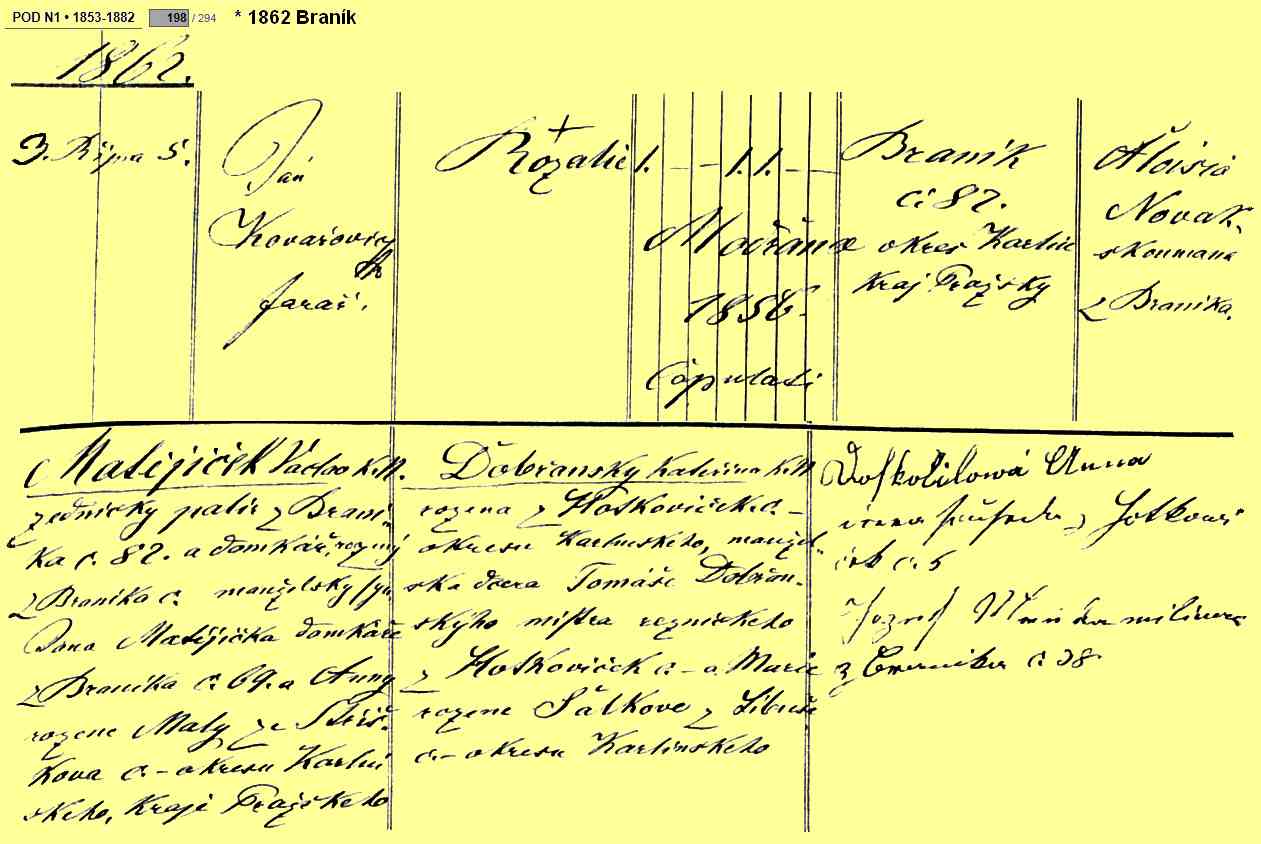 POD N1 • 1853-1882 198 / 294 * 1862 Braník
1862.
3. Října 5.
Jan
Kovařovic
farář.
+
Rozalie
1. — — 1. 1. — —
1856.
Copulati
Braník
č 82.
okres Karlín
Kraj Pražsky
Aloisia
Novak
zkoumana
z Braníka.
Matějiček Václav K.N.
zednický palir z Brani-
ka č. 82. a domkář, rozený
z Braníka č. manželsky syn
Jana Matějička domkáře
z Braníka č. 69. a Anny
rozene Maly ze Střiž-
kova č. – okresu Karlin
skeho, Kraje Pražskeho
Dobřansky Kateřina K.N.
rozena z Hotkoviček č. –
okresu Karlinskeho, manžel-
ska dcera Tomáše Dobřan-
skýho mistra reznickeho
z Hotkoviček č. – a Marie
rozene Šálkove z Libuše
č. – okresu Karlinskeho
Doskočilowá Anna
z Hotkowi
ček č. 5
Jozef
z Braníka č. 38